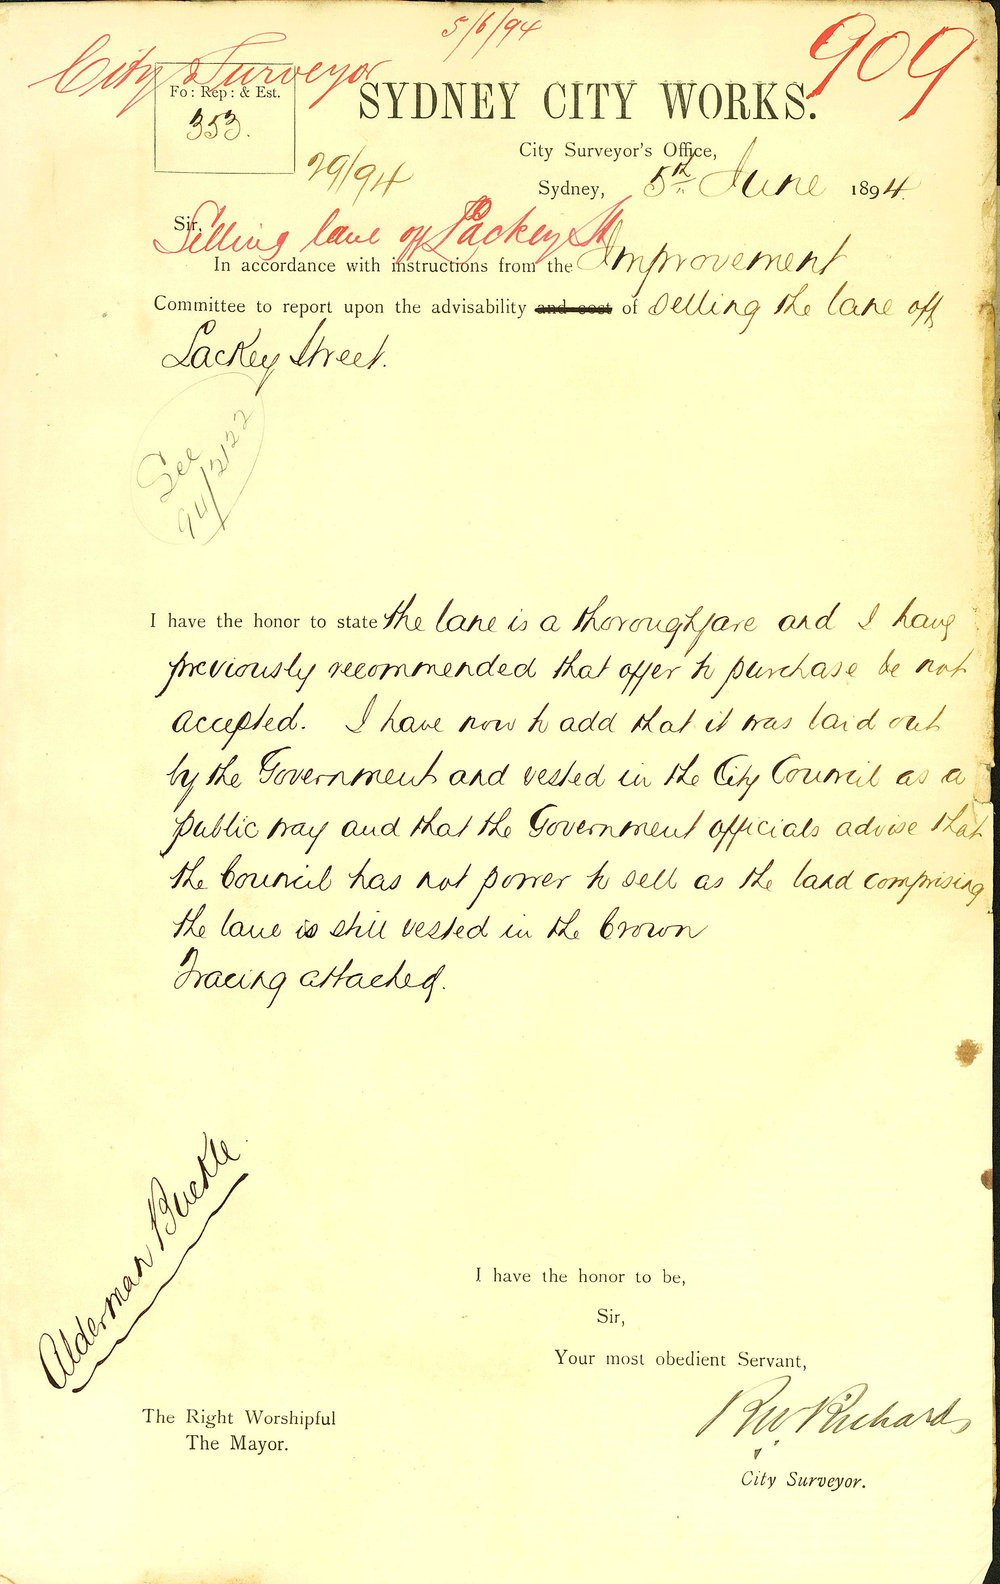 5/6/94
909
City Surveyor
Fo: Rep: & Est.
353.
SYDNEY CITY WORKS.
29/94
City Surveyor's Office,
Sydney, 5th June 1894
Sir,
Selling lane off Lackey St
In accordance with instructions from the Improvement
Committee to report upon the advisability and cost of selling the lane off
Lackey Street.
See
94/2122
I have the honor to state the lane is a thoroughfare and I have
previously recommended that offer to purchase be not
accepted. I have now to add that it was laid out
by the Government and vested in the City Council as a
public way and that the Government officials advise that
the Council has not power to sell as the land comprising
the lane is still vested in the Crown
Tracing attached.
Alderman Buckle
I have the honor to be,
Sir,
Your most obedient Servant,
The Right Worshipful
The Mayor.
R W. Richards
City Surveyor.